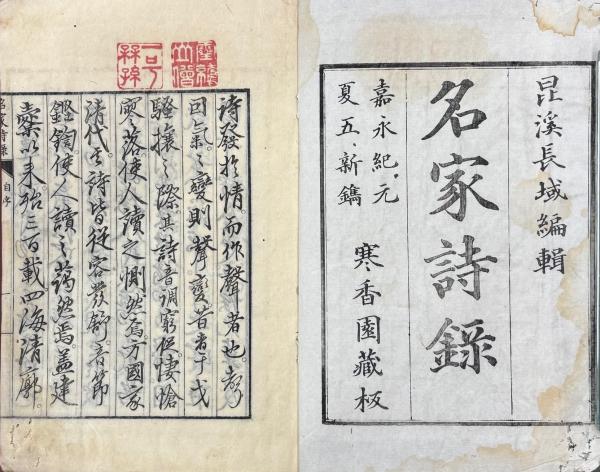 昆溪長域編輯
名家詩錄
嘉永紀元
夏五新鐫
寒香園藏板
詩發於情而作聲者也聲
因氣之變則聲變昔者干戈
騷擾之際其詩音調窮促悽愴
寥落使人讀之惻然焉方國家
清代其詩皆從容發舒音節
鏗鍧使人讀之藹然焉蓋建
櫜以來殆三百載四海清廓
名家詩錄
自序